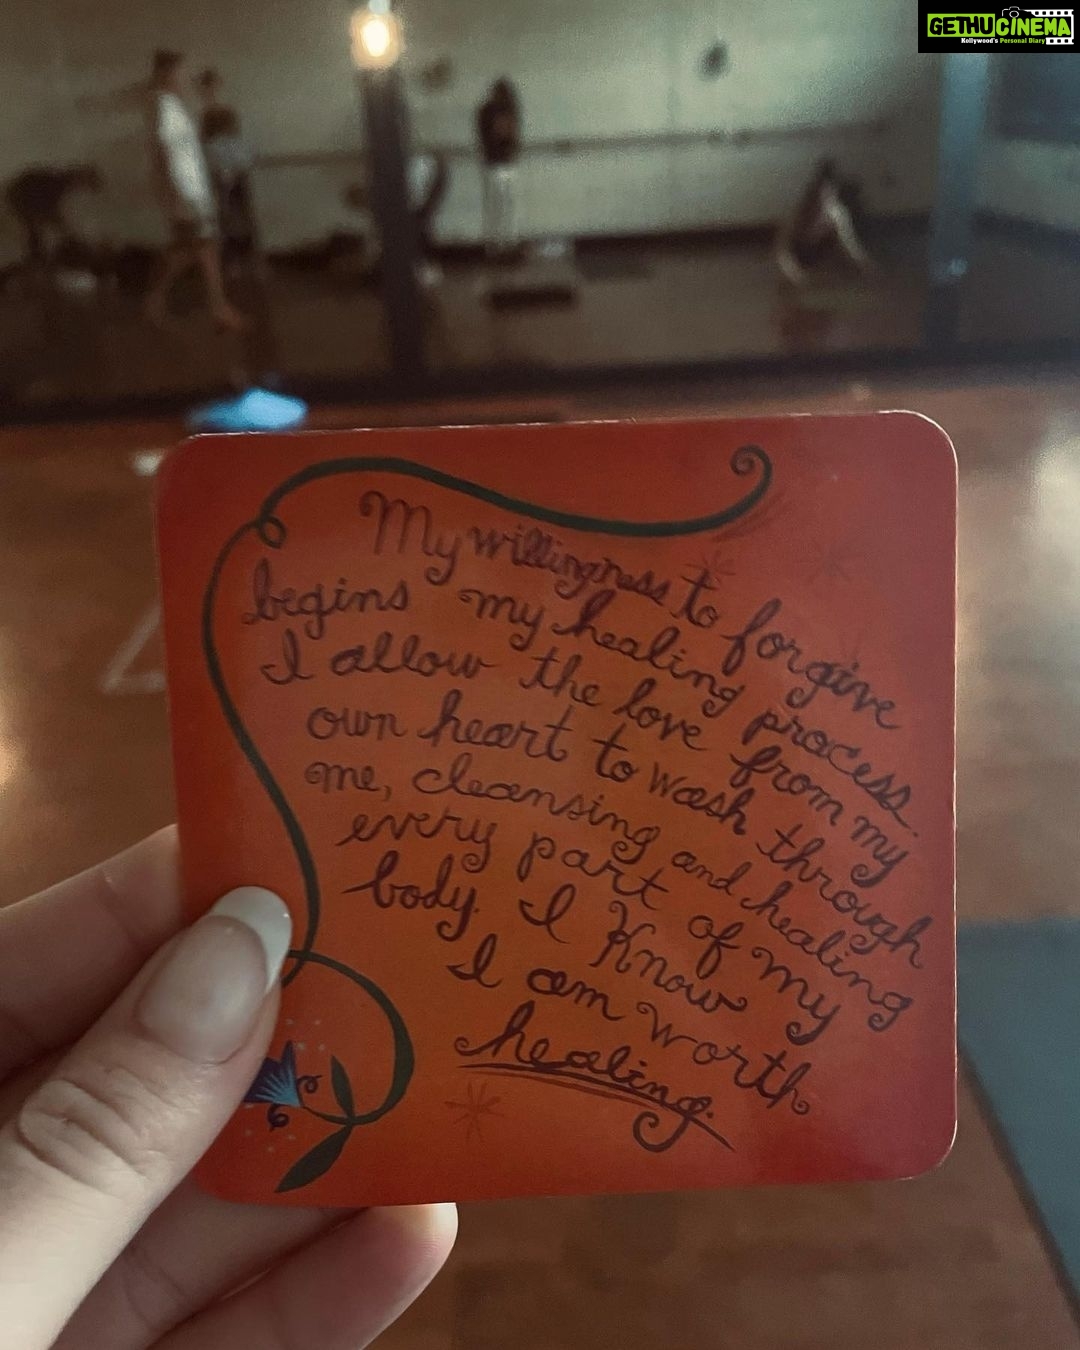 GETHUCINEMA
Kollywood's Personal Diary
My willingness to forgive
begins my healing process.
I allow the love from my
own heart to wash through
me, cleansing and healing
every part of my
body. I Know
I am worth
healing.